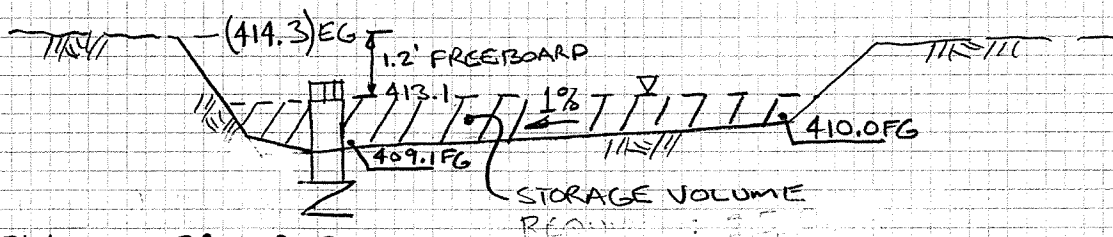 (414.3) EG
1.2' FREEBOARD
413.1
1%
410.0FG
409.1FG
STORAGE VOLUME